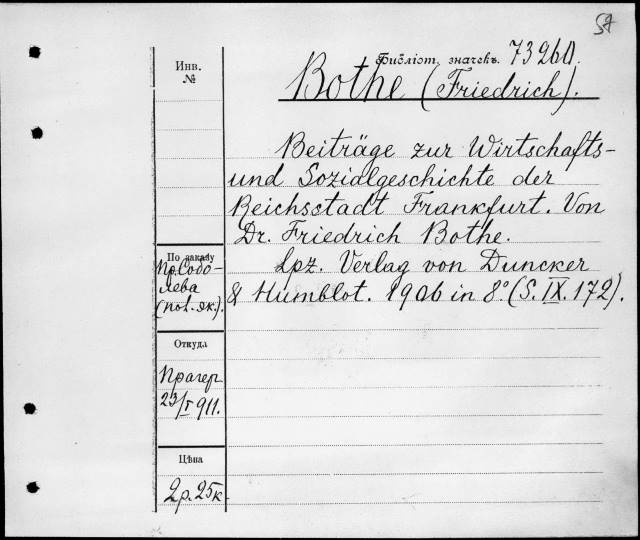 57
Инв.
№
Библіот. значекъ. 7326 D.
Bothe (Friedrich).
Beiträge zur Wirtschafts-
und Sozialgeschichte der
Reichsstadt Frankfurt. Von
Dr. Friedrich Bothe.
Lpz. Verlag von Duncker
& Humblot. 1906 in 8° (S. IX. 172).
По заказу
Пр. Собо-
лева
(пол.-эк.).
Откуда
Прагер
23/I 911.
Цѣна
2р. 25к.